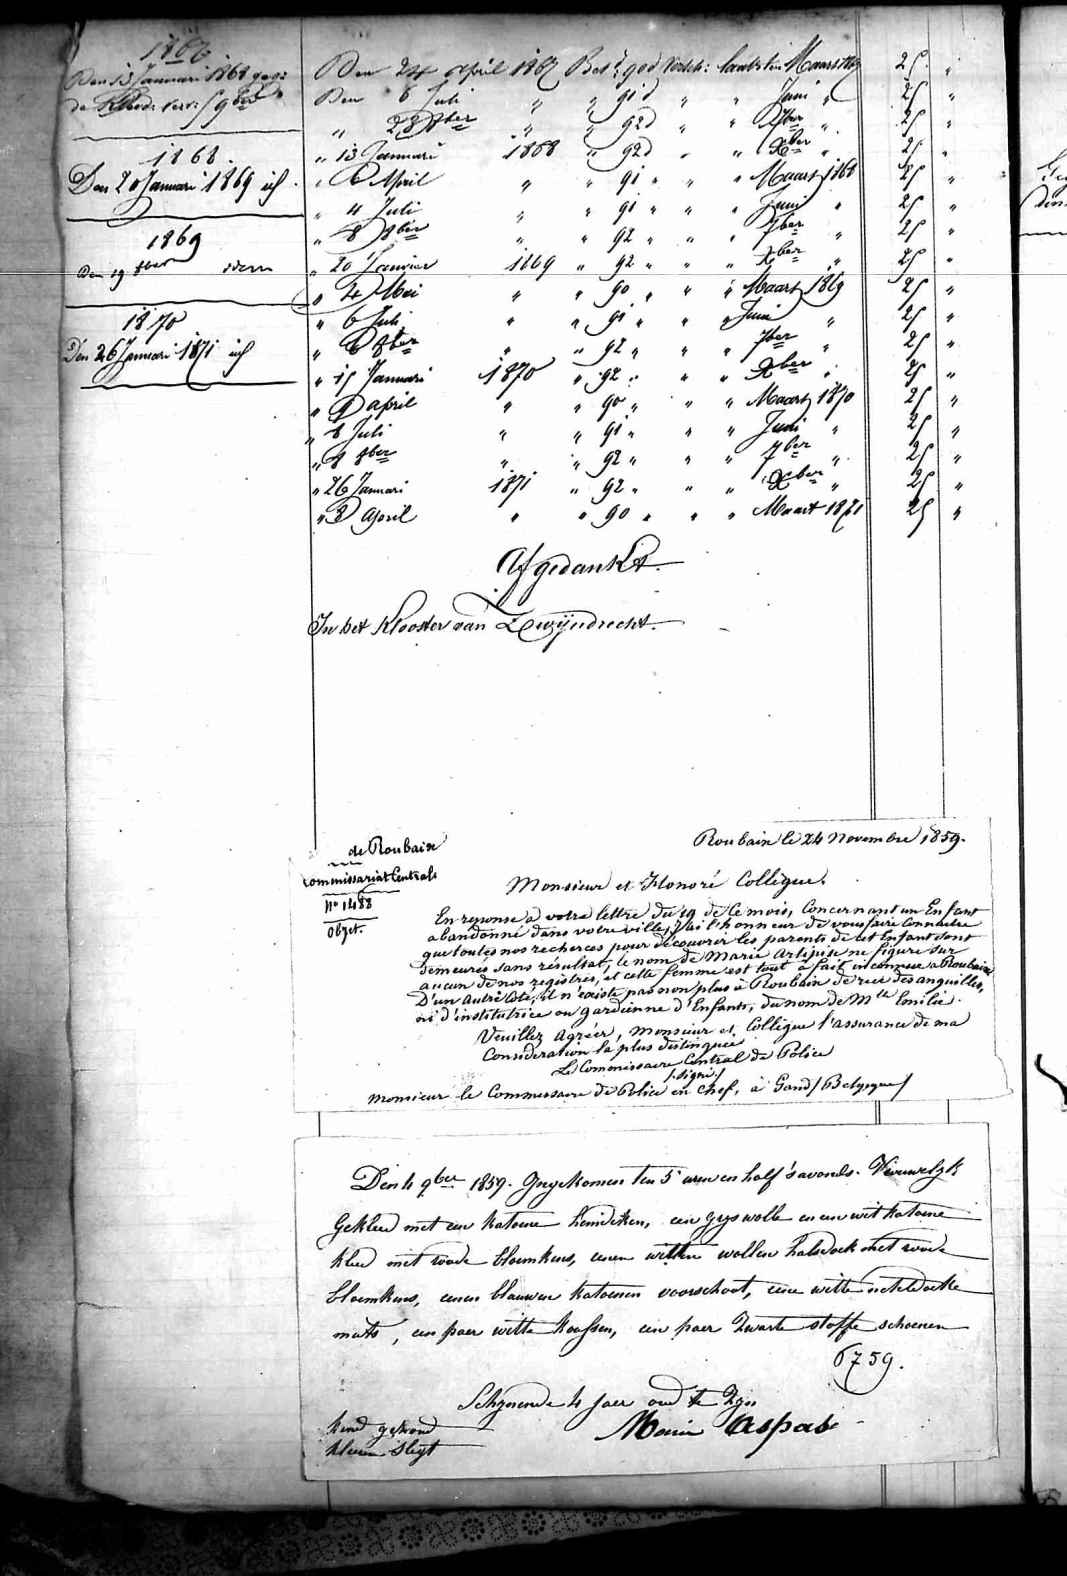 1867
Den 13 Januari 1868 gegv:
de Kleed: verv: / 9ber
1868.
Den 20 Januari 1869 id.
1869
Den 19 8ber idem
1870
Den 26 Januari 1871 id
Den 24 april 1867 Bet: 90d Maart 1867 25 "
Den 6 Juli " " 91d " " Juni " 25 "
" 28 8ber " " 92d " " 7ber " 25 "
" 13 Januari 1868 " 92d " " Xber " 25 "
" 6 April " " 91 " " " Maart 1868 25 "
" 4 Juli " " 91 " " " Juni " 25 "
" 8 8ber " " 92 " " " 7ber " 25 "
" 20 Janvier 1869 " 92 " " " Xber " 25 "
" 4 Mei " " 90 " " " Maart 1869 25 "
" 6 Juli " " 91 " " " Juni " 25 "
" 6 8ber " " 92 " " " 7ber " 25 "
" 15 Januari 1870 " 92 " " " Xber " 25 "
" 9 april " " 90 " " " Maart 1870 25 "
" 6 Juli " " 91 " " " Juni " 25 "
" 8 8ber " " 92 " " " 7ber " 25 "
" 26 Januari 1871 " 92 " " " Xber " 25 "
" 3 april " " 90 " " " Maart 1871 25 "
Afgedankt.
In het Klooster van Zwijndrecht.
de Roubaix
Commissariat Central
No 1488
Objet.
Roubaix le 24 Novembre 1859.
Monsieur et Honoré Collègue.
En reponse à votre lettre du 19 de ce mois, concernant un Enfant
abandonné dans votre ville, J'ai l'honneur de vous faire connaitre
que toutes nos recherces pour découvrir les parents de cet Enfant sont
demeurés sans résultat, le nom de Marie Artipise ne figure sur
aucun de nos registres, et cette femme est tout à fait inconnue a Roubaix
D'un autre côté, il n'existe pas non plus à Roubaix de rue des anguilles,
ni d'institutrice ou gardienne d'Enfants, du nom de Mlle Emilie.
Veuillez agréer, Monsieur et Collègue l'assurance de ma
Consideration la plus distinguée
Le Commissaire Central de Police
/signé/
Monsieur le Commissaire de Police en chef, à Gand / Belgique /
Den 4 9ber 1859. Ingekomen ten 5 uren en half 's avonds. Vrouwelyk
Gekleed met een katoene hemdeken, een gryswolle en een wit katoene
kleed met roode bloemkens, eenen witten wollen halsdoek met roode
bloemkens, eenen blauwen katoenen voorschoot, eene witte neteldoeke
muts, een paer witte koussen, een paer zwarte stoffe schoenen
6759.
Schynende 4 jaer oud te zyn
Kind gezond
Kleeren slegt
Marie Caspas